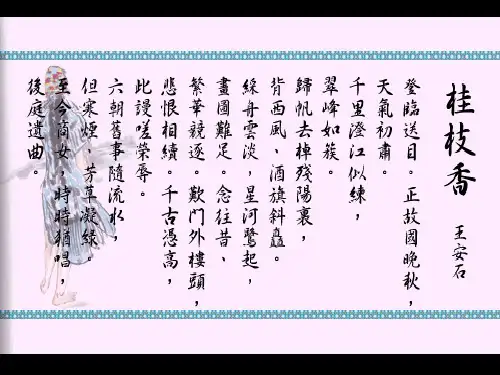 桂枝香
王安石
登臨送目。正故國晚秋,
天氣初肅。
千里澄江似練,
翠峰如簇。
歸帆去棹殘陽裏,
背西風、酒旗斜矗。
綵舟雲淡,星河鷺起,
畫圖難足。念往昔、
繁華競逐。歎門外樓頭,
悲恨相續。千古憑高,
此謾嗟榮辱。
六朝舊事隨流水,
但寒煙,芳草凝綠。
至今商女,時時猶唱,
後庭遺曲。